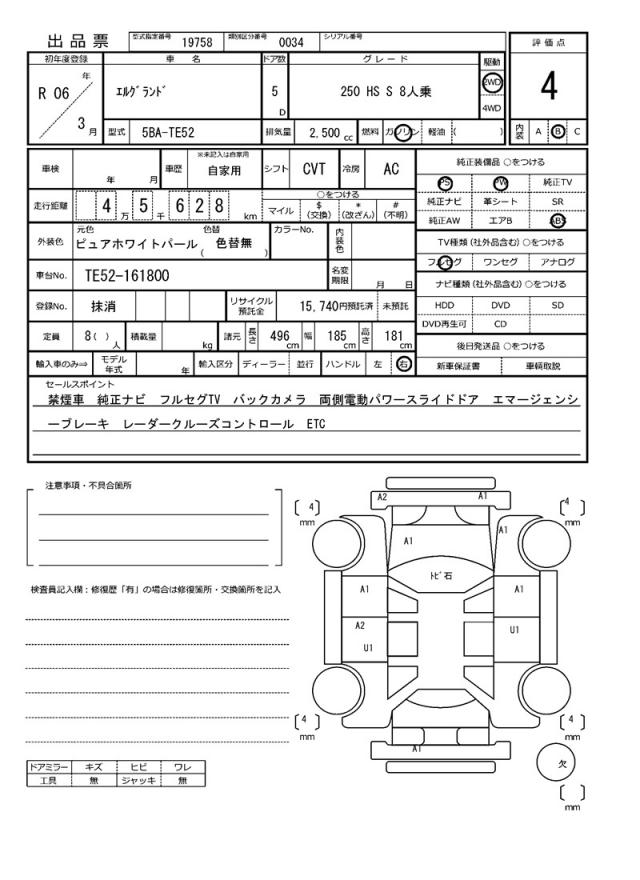 出品票 型式指定番号 19758 類別区分番号 0034 シリアル番号
評価点
4
初年度登録 車名 ドア数 グレード 駆動
R 06 年 3 月 エルグランド 5 D 250 HS S 8人乗 2WD 4WD
型式 5BA-TE52 排気量 2,500 cc 燃料 ガソリン 軽油 ( )
内装 A B C
車検 年 月 車歴 ※未記入は自家用 自家用 シフト CVT 冷房 AC
走行距離 4 万 5 千 6 2 8 km ○をつける マイル $(交換) *(改ざん) #(不明)
外装色 元色 ピュアホワイトパール 色替 ( 色替無 ) カラーNo. 内装色
車台No. TE52-161800 名変期限 月 日
登録No. 抹消 リサイクル預託金 15,740円預託済 未預託
定員 8( )人 積載量 kg 諸元 長さ 496 cm 幅 185 cm 高さ 181 cm
輸入車のみ⇒ モデル年式 年 輸入区分 ディーラー 並行 ハンドル 左 右
純正装備品 ○をつける
PS PW 純正TV
純正ナビ 革シート SR
純正AW エアB ABS
TV種類(社外品含む)○をつける
フルセグ ワンセグ アナログ
ナビ種類(社外品含む)○をつける
HDD DVD SD
DVD再生可 CD
後日発送品 ○をつける
新車保証書 車輌取説
セールスポイント
禁煙車 純正ナビ フルセグTV バックカメラ 両側電動パワースライドドア エマージェンシ
ーブレーキ レーダークルーズコントロール ETC
注意事項・不具合箇所
検査員記入欄：修復歴「有」の場合は修復箇所・交換箇所を記入
ドアミラー キズ ヒビ ワレ
工具 無 ジャッキ 無
A2 A1
[ 4 ] mm [ 4 ] mm
A1 A1
トビ石
A1 A1
A2
U1 U1
[ 4 ] mm [ 4 ] mm
A1
欠
[ ] mm